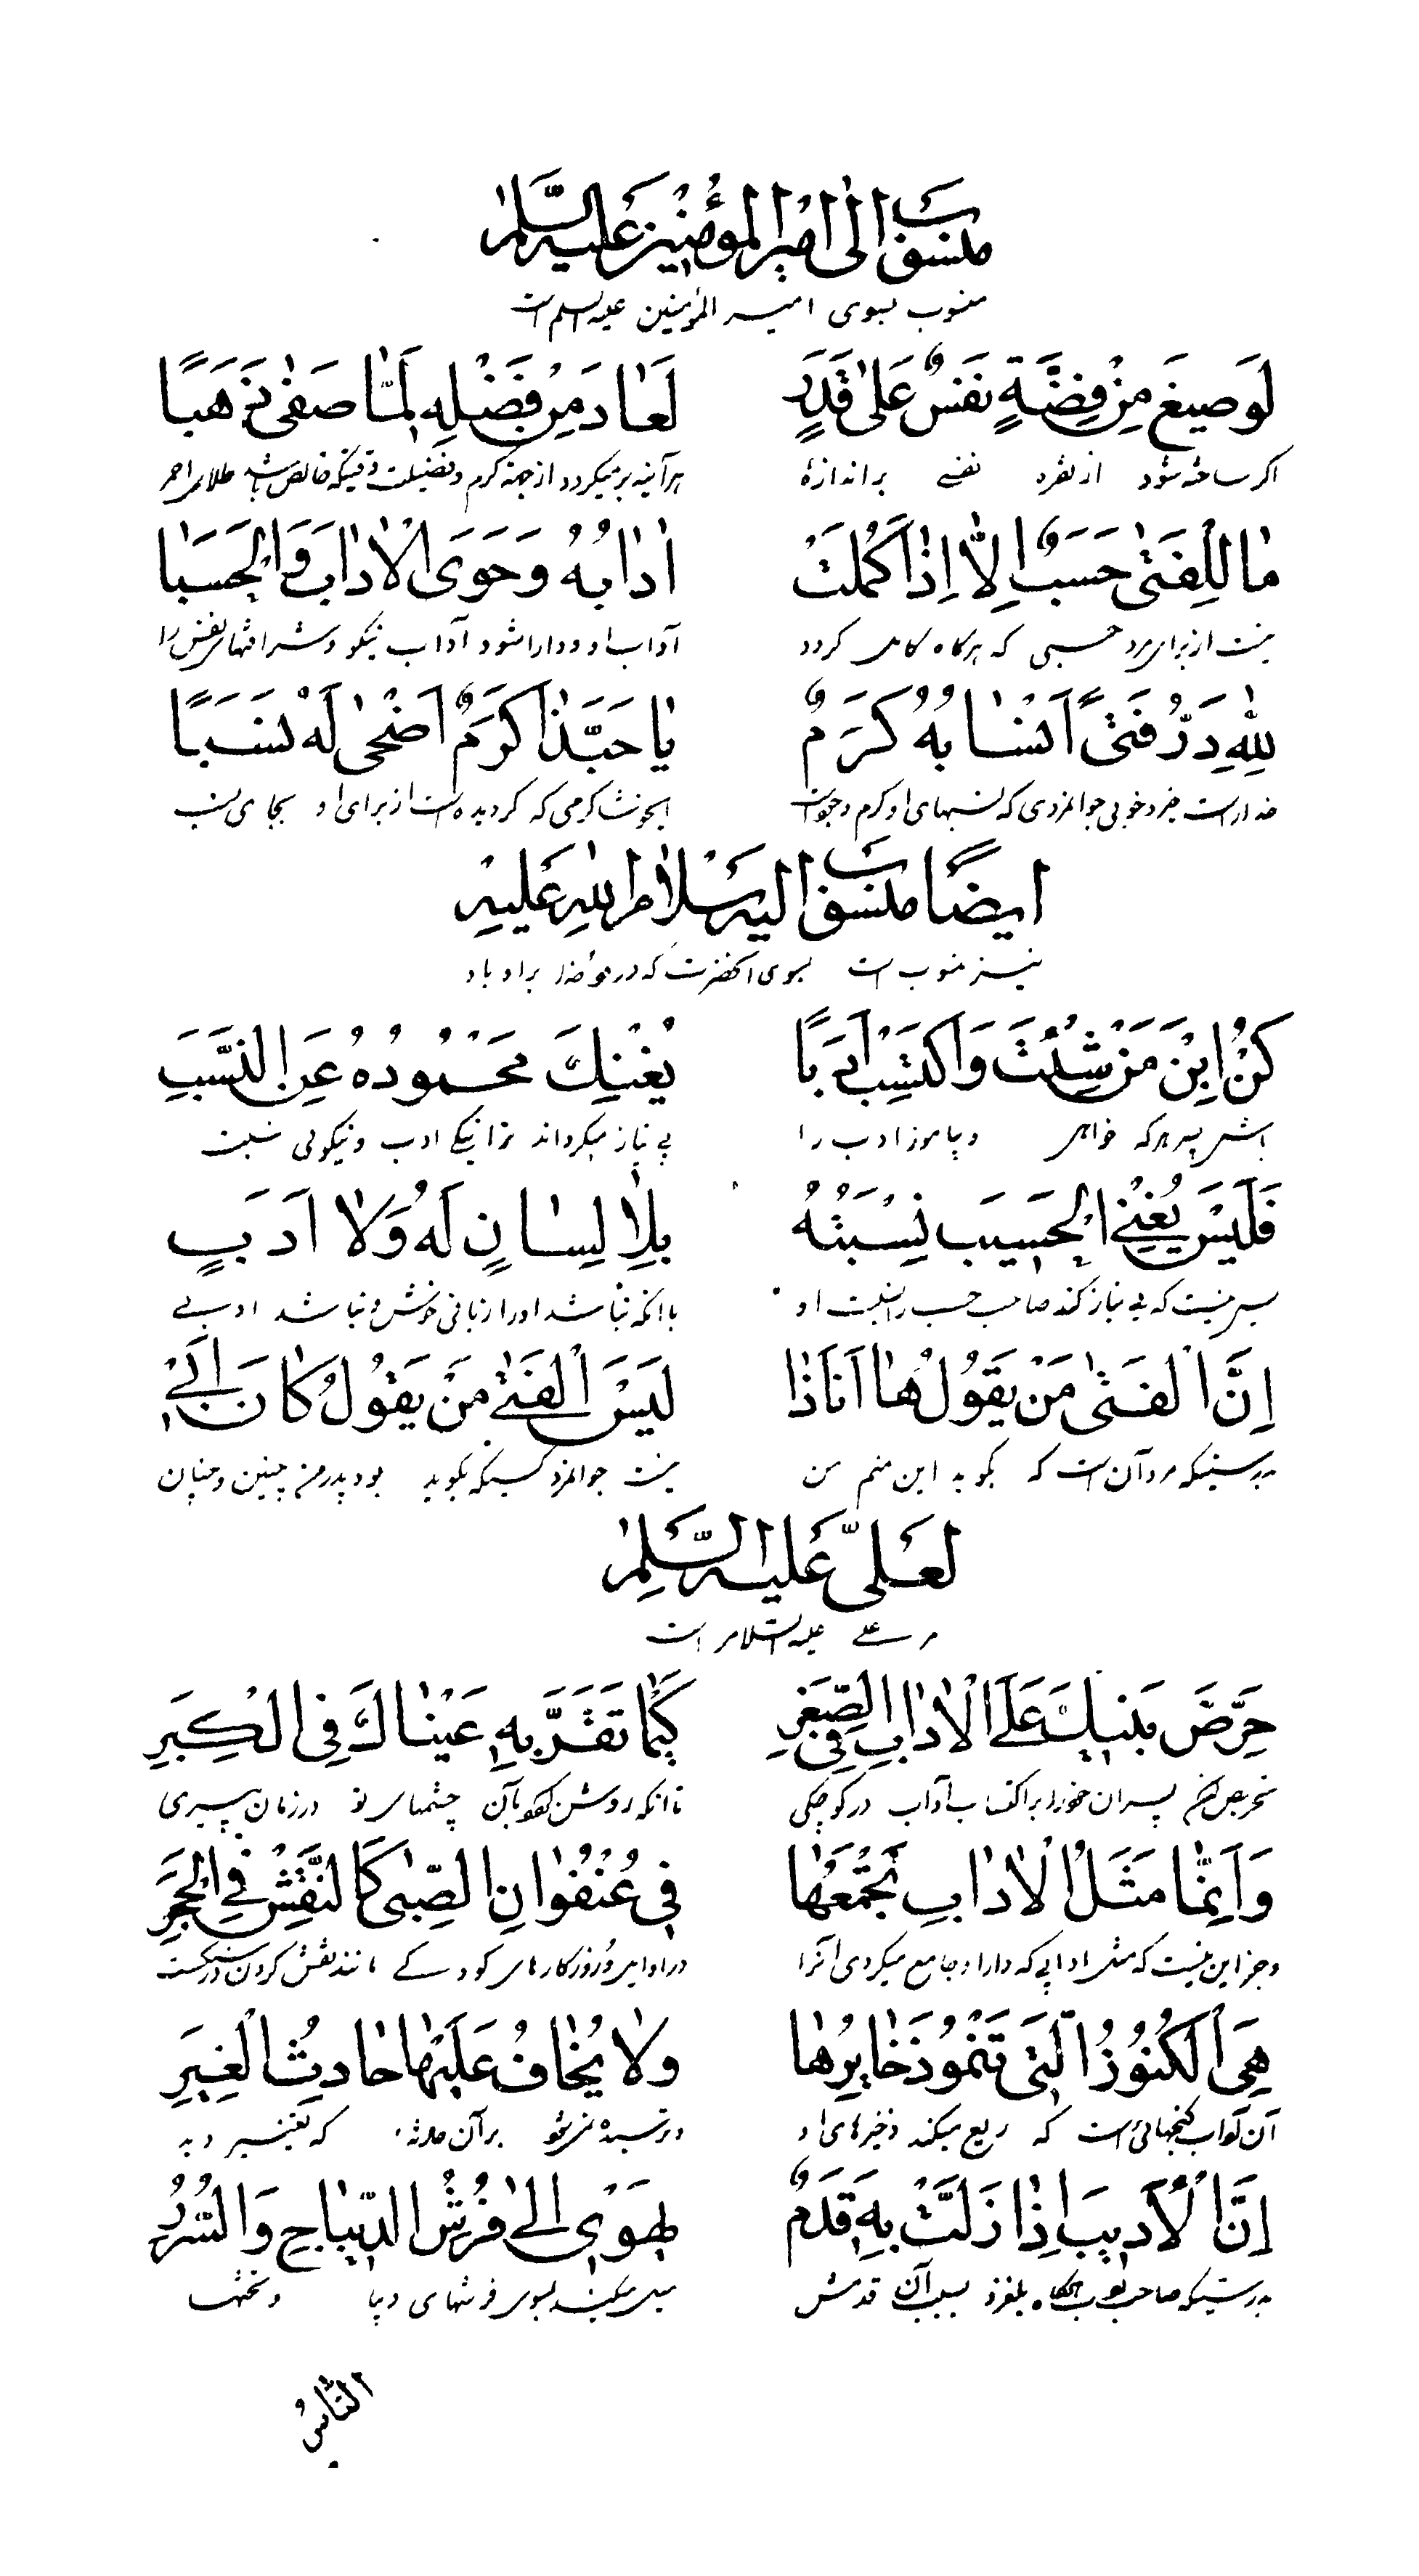 منسوب الی امیر المؤمنین علیه السلم
منسوب بسوی امیر المؤمنین علیه السلم است
لَو صیغَ مِنْ فِضَّةٍ نَفسٌ عَلیٰ قَدَرٍ لَعٰادَ مِنْ فَضْلِهِ لَمّٰا صَفیٰ ذَهَبًا
اکر ساخته شود از نقره نفسی بر اندازهٔ هرآینه برمیکردد از جهة کرم و فضیلت وقتیکه خالص باشد طلای احمر
مٰا لِلْفَتیٰ حَسَبٌ اِلّٰا اِذٰا کَمُلَتْ اٰدٰابُهُ وَحَوَی الْاٰدٰابَ وَالْحَسَبٰا
نیست از برای مرد حسبی که هرکاه کامل کردد آداب او و دارا شود آداب نیکو و شرافتهای نفس را
لِلّٰهِ دَرُّ فَتیً اَنْسٰابُهُ کَرَمٌ یٰا حَبَّذٰا کَرَمٌ اَضْحیٰ لَهُ نَسَبًا
خداراست خیر و خوبی جوانمردی که نسبهای او کرم و جود است ایخوشا کرمی که کردیده است از برای او بجای نسب
ایضًا منسوب الیه سَلامُ اللهِ عَلیهِ
نیز منسوب است بسوی آنحضرت که درود خدا بر او باد
کُنْ اِبْنَ مَنْ شِئْتَ وَاکْتَسِبْ اَدَبًا یُغْنیكَ مَحْمُودُهُ عَنِ النَّسَبِ
باش پسر هرکه خواهی و بیاموز ادب را بی نیاز میکرداند ترا نیکی ادب و نیکوئی نسبت
فَلَیْسَ یُغْنِی الْحَسیبَ نِسْبَتُهُ بِلٰا لِسٰانٍ لَهُ وَلٰا اَدَبٍ
پس نیست که بی نیاز کند صاحب حسب را نسبت او با انکه نباشد او را زبانی خوش و نباشد ادبی
اِنَّ الْفَتیٰ مَنْ یَقُولُ هٰا اَنَاذٰا لَیْسَ الْفَتیٰ مَنْ یَقُولُ کٰانَ اَبی
بدرستیکه مرد آن است که بگوید این منم من نیست جوانمرد کسیکه بگوید بود پدر من چنین و چنان
لعَلیّ عَلیه السَّلٰم
مر علی علیه السلام راست
حَرِّضْ بَنیكَ عَلَی الْاٰدٰابِ فِی الصِّغَرِ کَیْمٰا تَقَرَّ بِهِ عَیْنٰاكَ فِی الْکِبَرِ
تحریص کن پسران خود را بر اکتساب آداب در کوچکی تا انکه روشن شود بآن چشمهای تو در زمان پیری
وَاِنَّمٰا مَثَلُ الْاٰدٰابِ تَجْمَعُهٰا فی عُنْفُوٰانِ الصِّبیٰ کَالنَّقْشِ فِی الْحَجَرِ
و جز این نیست که مثل ادابی که دارا و جامع میکردی آنرا در اوایل روزکارهای کودکی مانند نقش کردن در سنک است
هِیَ الْکُنُوزُ الَّتی تَنْمُو ذَخٰایِرُهٰا وَلٰا یُخٰافُ عَلَیْهٰا حٰادِثُ الْغِیَرِ
آن آداب کنجهائی است که ریع میکند ذخیرهای او و ترسیده نمی شود بر آن حادثهٔ که تغییر دهد
اِنَّ الْاَدیبَ اِذٰا زَلَّتْ بِهِ قَدَمٌ یَهْوی اِلیٰ فُرُشِ الدّیبٰاجِ وَالسُّرُرِ
بدرستیکه صاحب ادب هرکاه بلغزد بسبب آن قدمش میل میکند بسوی فرشهای دیبا و تختها
النّٰاسُ